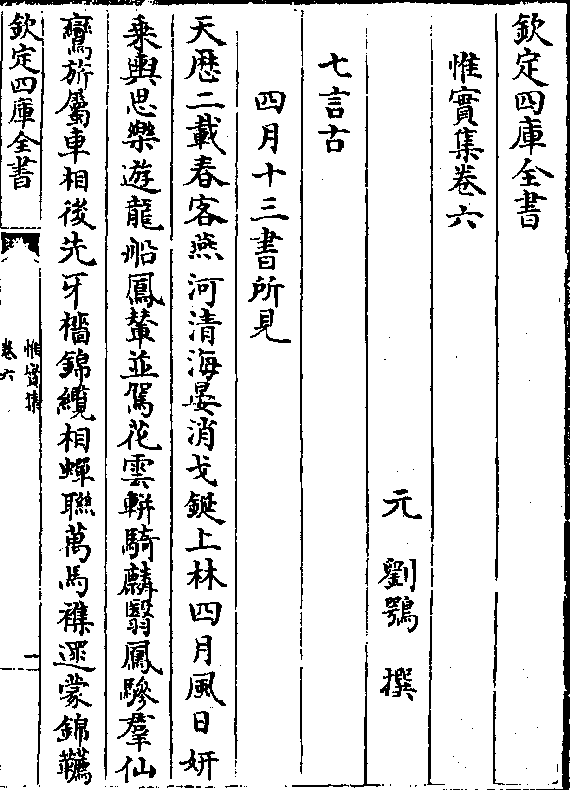 欽定四庫全書
惟實集卷六
元　劉鶚　撰
七言古
四月十三書所見
天厯二載春客燕河清海晏消戈鋋上林四月風日妍
乗輿思樂遊龍船鳳輦並駕花雲軿騎麟翳鳳驂羣仙
鸞旂屬車相後先牙檣錦纜相蟬聯萬馬雜遝蒙錦韉
欽定四庫全書
惟實集
卷六
一